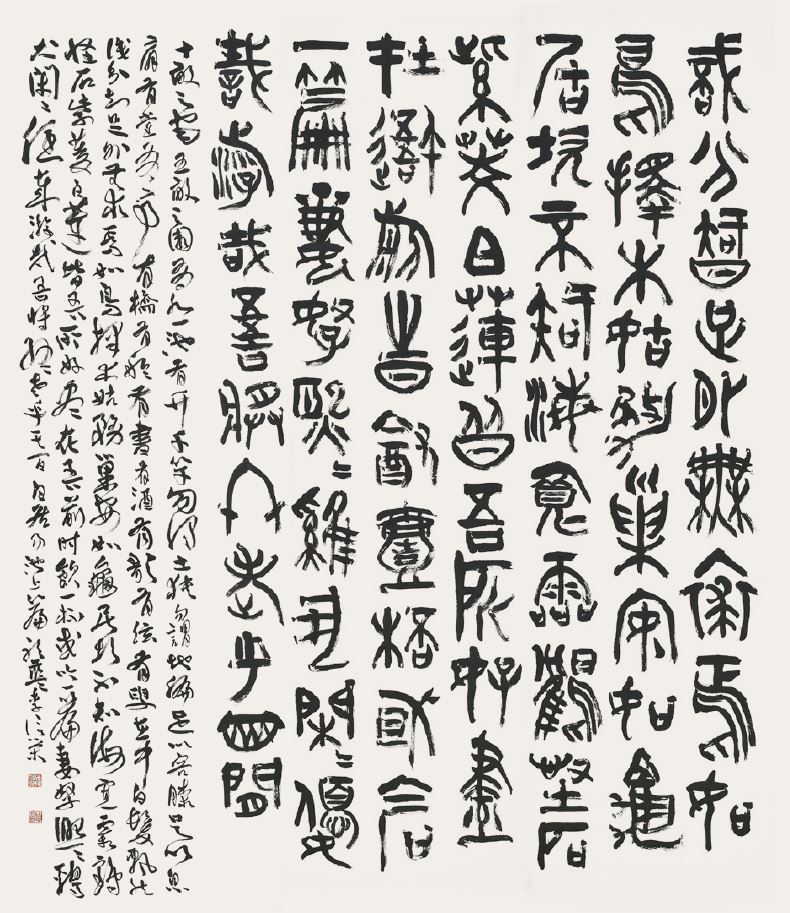 識分知足外無求焉如
鳥擇木姑務巢安如龜
居坎不知海寬靈鶴怪石
紫菱白蓮皆吾所好盡
在吾前時飲壹杯或吟
一篇妻孥熙々雞犬閑々優
哉游哉吾將終老乎其間
十畝之宅五畝之園有水一池有竹千竿勿謂土狹勿謂地偏足以容膝足以息
肩有堂有亭有橋有船有書有酒有歌有弦有叟在中白鬚飄然
識分知足外無求焉如鳥擇木姑務巢安如龜居坎不知海寬靈鶴
怪石紫菱白蓮皆吾所好盡在吾前時飲一杯或吟一篇妻孥熙々雞
犬閑々優哉游哉吾將終老乎其間白居易池上篇